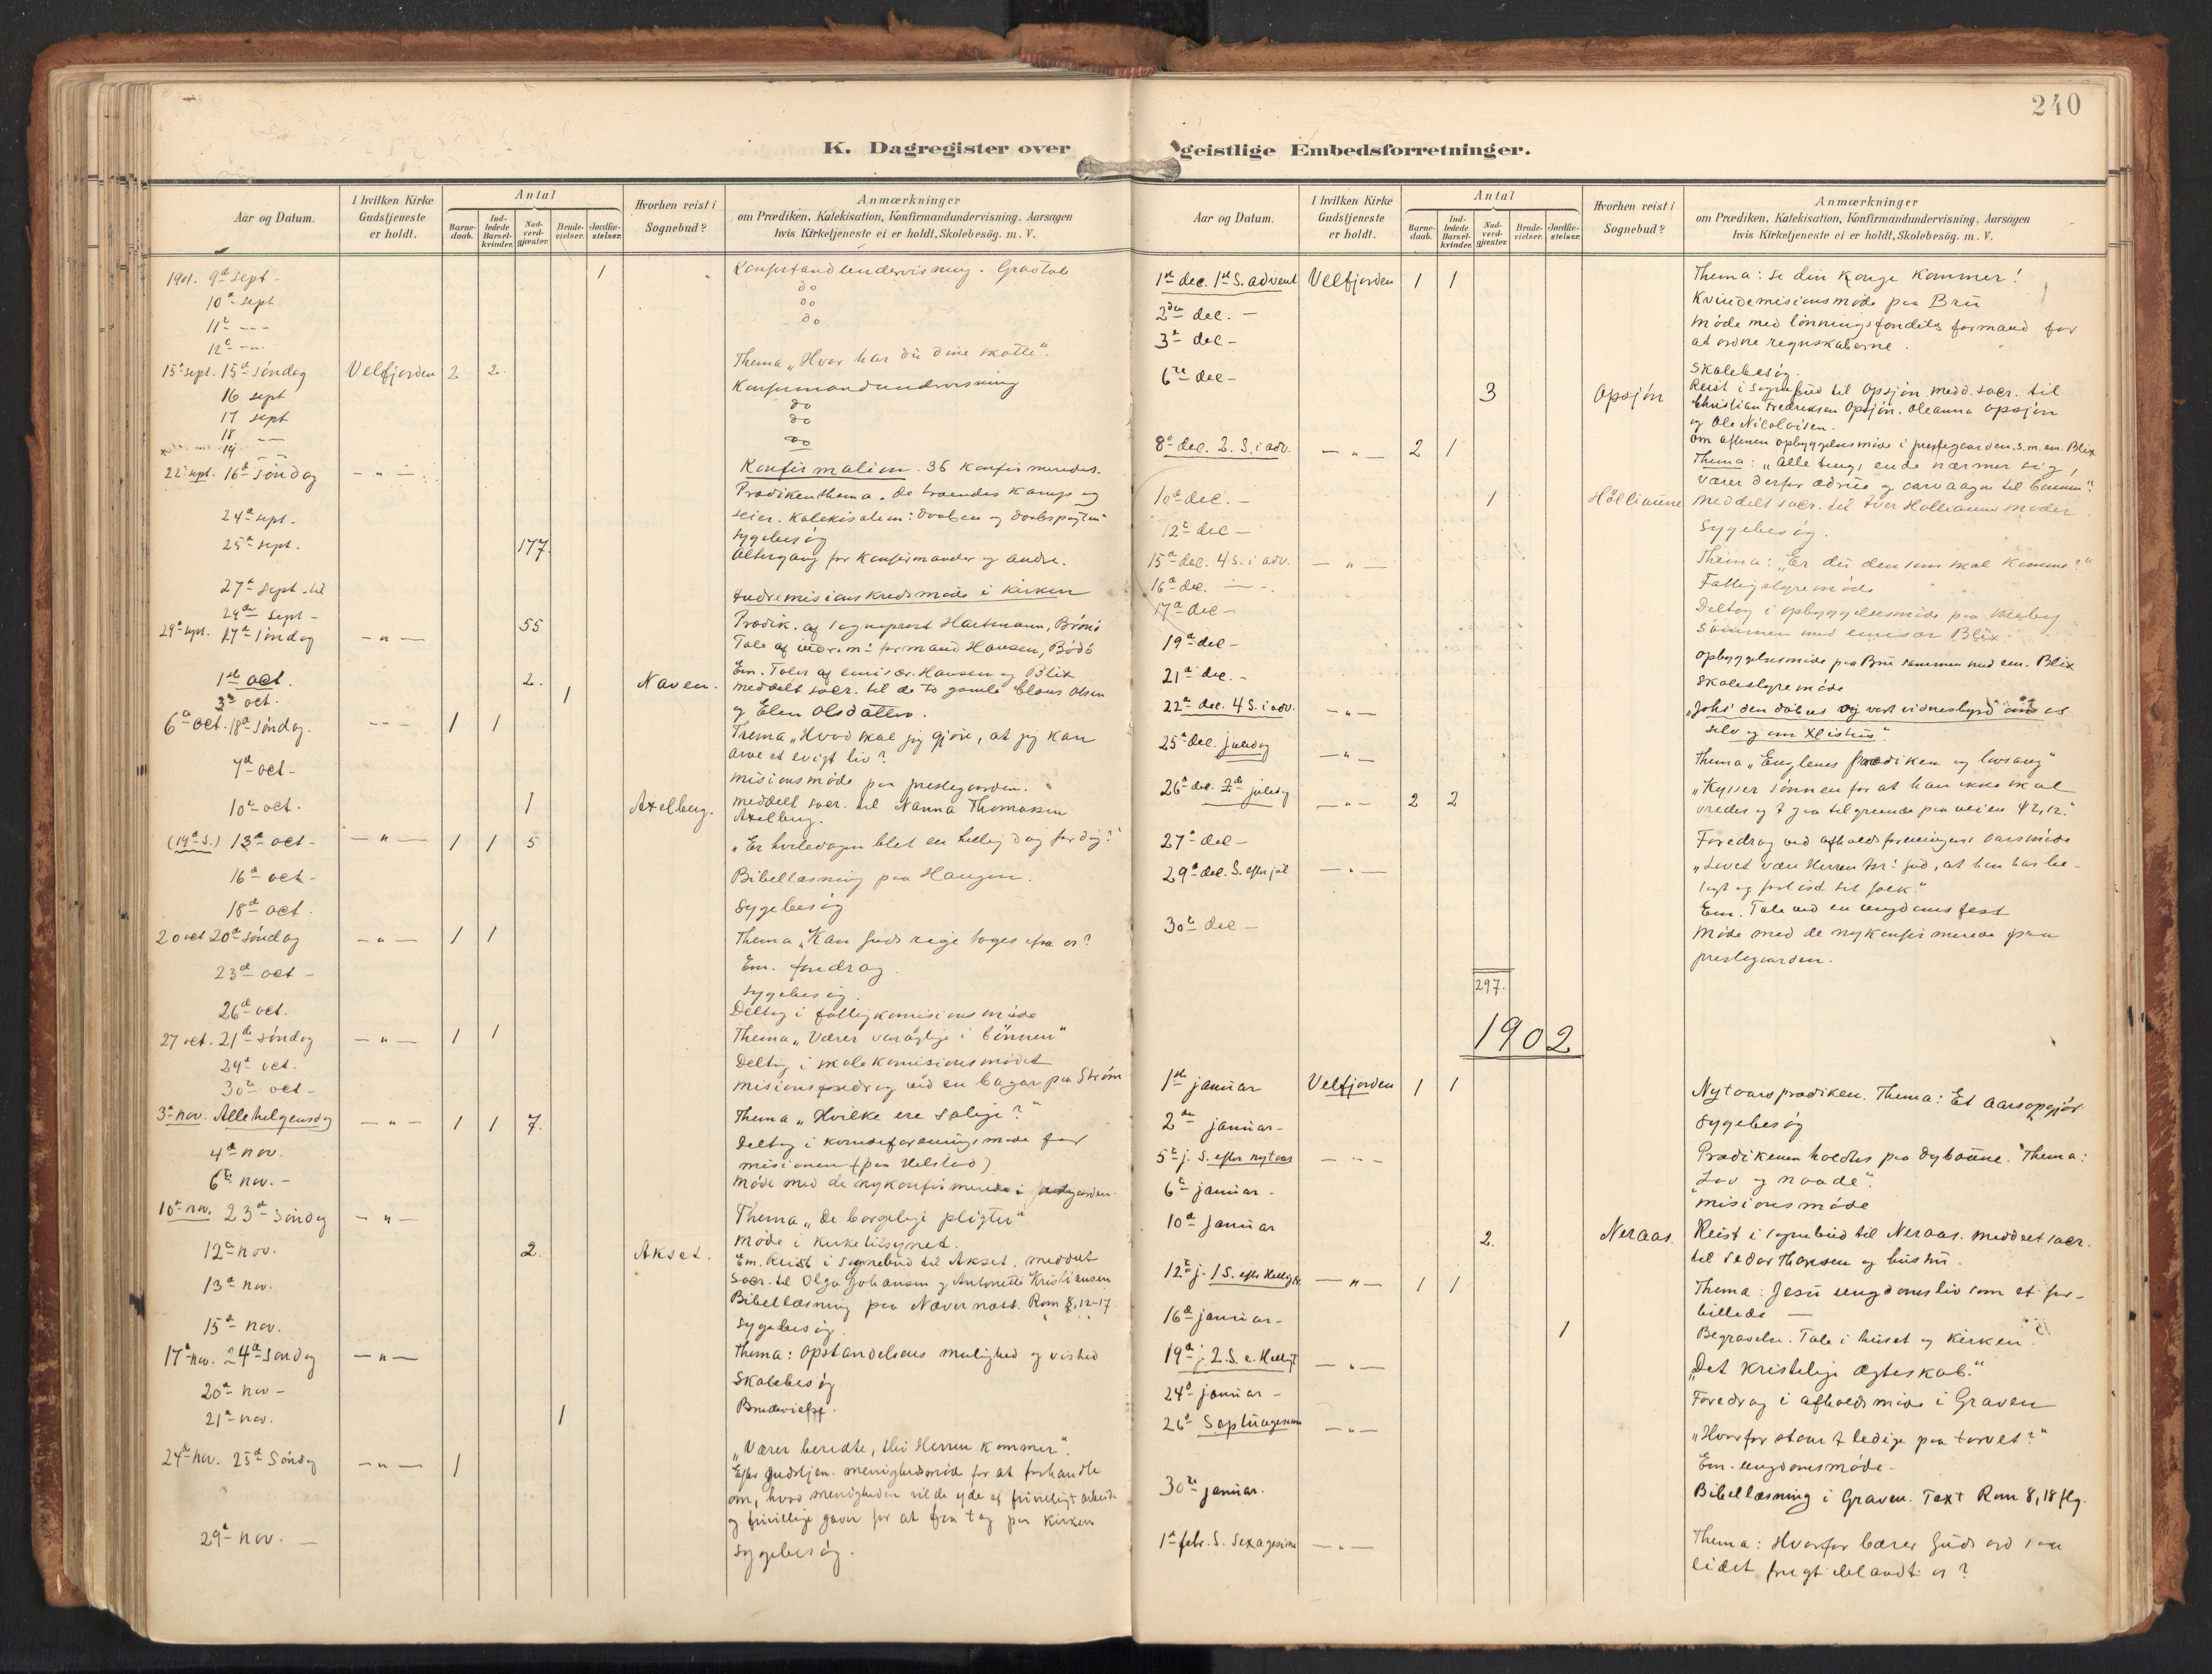 240
K. Dagregister over geistlige Embedsforretninger.
Aar og Datum.
I hvilken Kirke Gudstjeneste er holdt.
Antal
Barne-daab.
Ind-ledede Barsel-kvinder.
Nad-verd-gjæster.
Brude-vielser.
Jordfæ-stelser.
Hvorhen reist i Sognebud?
Anmærkninger
om Prædiken, Katekisation, Konfirmandundervisning, Aarsagen
hvis Kirketjeneste ei er holdt, Skolebesög. m. V.
1901. 9de sept - 1 Gravtale
10de sept do
11te - - - do
12te - - - do
15de sept. 15de söndag Velfjorden 2 2. Thema „Hvor har du dine skatte".
16 sept Konfirmandundervisning
17 sept do
18 - - do
19 - - do
22de sept. 16de söndag - „ - Konfirmation. 36 konfirmeredes.
Prædikenthema. De troendes kamp og
seier. Katekisation: daaben og daabspagten
24de sept. Sygebesög
25de sept. 177. Altergang for konfirmander og andre.
27de sept. til
29de sept - Indremisions kredsmöde i kirken
29de sept. 17de söndag - „ - 55 Prædik. af sogneprest Hartmann, Brönö
Tale af indrem. formand Hansen, Bodö
Em. Taler af emisær. Hansen og Blix
1ste oct. 2. Naven. meddelt sacr. til de to gamle Claus Olsen
3die oct. 1 og Elen Olsdatter.
6te oct. 18de söndag. - - - 1 1 Thema „Hvad skal jeg gjöre, at jeg kan
arve et evigt liv?
7de oct - misionsmöde paa prestegaarden.
10de oct. 1 Axelberg. meddelt sacr. til Nanna Thomassen
Axelberg.
(19de S.) 13de oct - - „ - 1 1 5 „Er hviledagen blet en hellig dag for dig?"
16de oct - Bibellæsning paa Haugen.
18de oct. Sygebesög
20 oct 20de söndag - „ - 1 1 Thema „Kan Guds rige tages ifra os?
Em. foredrag.
23de oct - Sygebesög.
26de oct. Deltog i fattigkomisionsmöde
27 oct. 21de söndag - „ - 1 1 Thema „Værer varagtige i bönnen"
29de oct. Deltog i skolekomisionsmödet
30te oct - misionsforedrag ved en bazar paa Ström
3die nov. Allehelgensdag - „ - 1 1 7. Thema „Hvilke ere salige?"
4de nov. Deltog i kvindeforeningsmöde for
misionen (paa Helstad)
6te nov. - Möde med de nykonfirmerede i prestegaarden.
10de nov. 23de Söndag - „ - Thema „De borgelige pligter"
12te nov. 2. Akset. Möde i kirketilsynet.
Em. Reist i sognebud til Akset. meddelt
sacr. til Olga Johansen og Antonette Kristiansen
13de nov. Bibellæsning paa Nævernæss. Rom 8, 12-17
15de nov. Sygebesög.
17de nov. 24de Söndag - „ - Thema: Opstandelsens mulighed og vished
20de nov - Skolebesög
21de nov. 1 Brudevielse.
24de nov. 25de Söndag - „ - 1 „Værer beredte, thi Herren kommer".
Efter gudstjen. menighedsmöde for at forhandle
om, hvad menigheden vilde yde af frivilligt arbeide
og frivillige gaver for at faa tag paa kirken
29de nov. - Sygebesög.
1ste dec. 1ste S. advent Velfjorden 1 1 Thema: Se din konge kommer!
2den dec. - Kvindemisionsmöde paa Bru
3die dec - Möde med lönningsfondets formand for
at ordne regnskaberne.
6te dec - Skolebesög.
3 Opsjön Reist i sognebud til Opsjön medd. sacr. til
Christian Fredriksen Opsjön. Oleanna Opsjön
og Ole Nicolaisen.
Om aftenen opbyggelsesmöde i prestegaarden s. m. em. Blix.
8de dec. 2. S. i adv. - „ - 2 1 Thema: „Alle tings ende nærmer sig,
værer derfor ædrue og aarvaagne til bønnen".
10de dec. - 1 meddelt sacr. til
12te dec - Sygebesög.
15de dec. 4 S. i adv. - „ - Thema: „Er du den som skal komme?"
16de dec. - - Fattigstyremöde
17de dec - Deltog i opbyggelsesmöde paa
sammen med emisær Blix.
19de dec - Opbyggelsesmöde paa Bru sammen med em. Blix
21de dec. - Skolestyremöde
22de dec. 4 S. i adv. - „ - „Johs den döbers og vort vidnesbyrd om os
selv og om Xristus".
25de dec. juledag - „ - Thema „Englenes prædiken og lovsang"
26de dec. 2den juledag - „ - 2 2 „Kysser sönnen for at han ikke skal
vredes og I gaa tilgrunde paa veien"
27de dec - Foredrag ved afholdsforeningens aarsmöde
29de dec. S. efter jul - „ - „Lovet være Herren Isr. gud, at han har be-
sögt og forlöst sit folk."
Em. Tale ved en ungdomsfest
30te dec - Möde med de nykonfirmerede paa
prestegaarden.
297.
1902
1ste januar Velfjorden 1 1 Nytaarsprædiken. Thema: Et aarsopgjör
2den januar - Sygebesög
5te j. S. efter nytaar - „ - Prædikenen holdtes paa Thema:
„Lov og naade".
6te januar - misionsmöde
10de januar 2. Neraas. Reist i sognebud til Neraas. meddelt sacr.
til Peder Thoresen og hustru.
12te j. 1 S. efter Helligt - „ - 1 1 Thema: Jesu ungdomsliv som et for-
billede -
16de januar - 1 Begravelse. Tale i huset og kirken.
19de j. 2. S. e. Helligt - „ - „Det kristelige ægteskab."
24de januar - Foredrag i afholdsmöde i Graven
26de Septuagesima - „ - „Hvorfor staar I ledige paa torvet?"
Em. ungdomsmöde -
30te januar. Bibellæsning i Graven. Text Rom 8,18 flg.
1ste febr. S. Sexagesima - „ - Thema: Hvorfor bærer Guds ord saa
lidet frugt iblandt os?